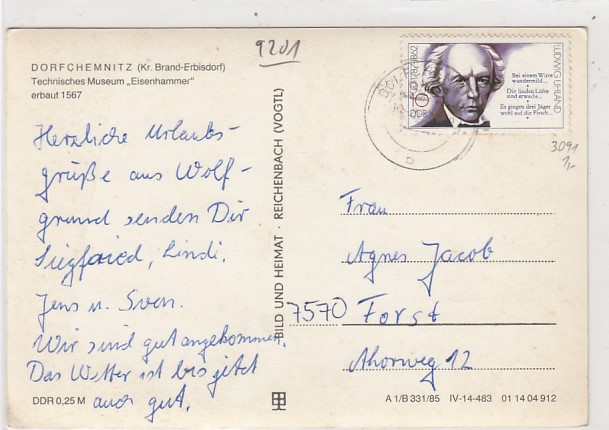 9201
DORFCHEMNITZ (Kr. Brand-Erbisdorf)
Technisches Museum „Eisenhammer"
erbaut 1567
Herzliche Urlaubs-
grüße aus Wolf-
grund senden Dir
Siegfried, Lindi,
Jens u. Sven.
Wir sind gut angekommen.
Das Wetter ist bis jetzt
auch gut.
DDR 0,25 M
BILD UND HEIMAT · REICHENBACH (VOGTL)
1787-1862
LUDWIG UHLAND
Bei einem Wirte
wundermild...
Die linden Lüfte
sind erwacht...
Es gingen drei Jäger
wohl auf die Pirsch...
10
DDR
3091
1,-
Frau
Agnes Jacob
7570 Forst
Ahornweg 12
A 1/B 331/85 IV-14-483 01 14 04 912